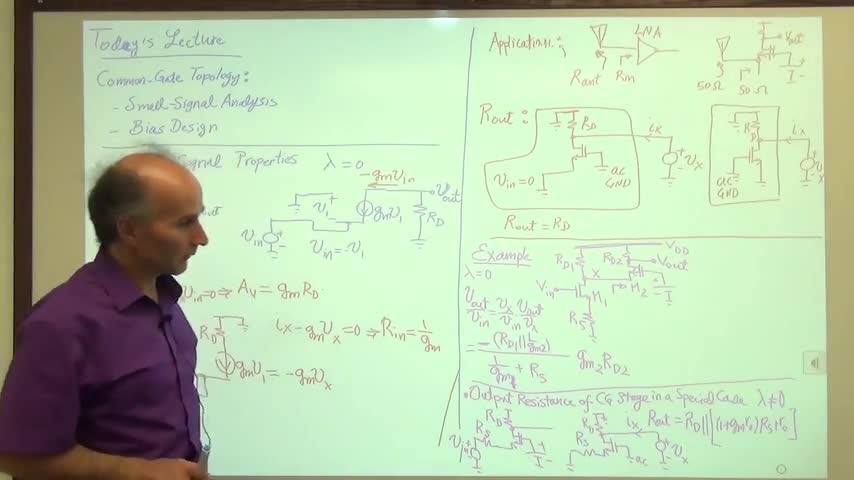 Today's Lecture
Common-Gate Topology:
- Small-Signal Analysis
- Bias Design
Signal Properties λ = 0
-gmvin
out
v1 + -
gmv1
vout
RD
vin + -
vin = -v1
vin=0 ⇒ Av = gmRD
RD
ix - gmvx = 0 ⇒ Rin = 1/gm
gmv1 = -gmvx
Applications:
LNA
Rant
Rin
50Ω
50Ω
Vout
I
Rout:
RD
ix
vin=0
ac
GND
+ vx -
RD
ix
ac
GND
+ vx -
Rout = RD
Example
λ=0
VDD
RD1
RD2
Vout
X
Vin
M1
M2
I
RS
vout/vin = vx/vin vout/vx
= -(RD1||1/gm2) / (1/gm1 + RS) gm2RD2
• Output Resistance of CG Stage in a Special Case λ≠0
RD
RS
Vin + -
I
RD
RS
ix
ac
+ vx -
Rout = RD||[(1+gmro)RS+ro]